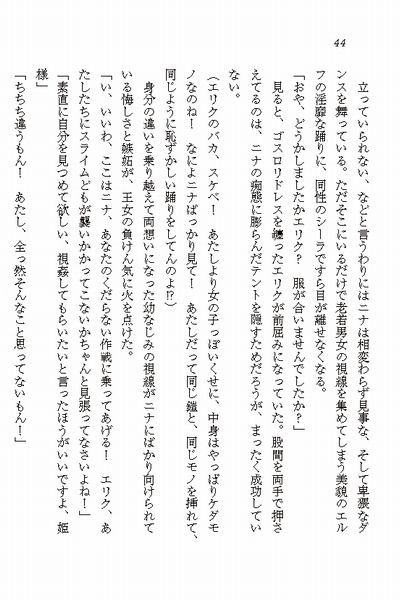 44
立っていられない、などと言うわりにはニナは相変わらず見事な、そして卑猥なダ
ンスを舞っている。ただそこにいるだけで老若男女の視線を集めてしまう美貌のエル
フの淫靡な踊りに、同性のシーラですら目が離せなくなる。
「おや、どうかしましたかエリク？　服が合いませんでしたか？」
見ると、ゴスロリドレスを纏ったエリクが前屈みになっていた。股間を両手で押さ
えてるのは、ニナの痴態に膨らんだテントを隠すためだろうが、まったく成功してい
ない。
（エリクのバカ、スケベ！　あたしより女の子っぽいくせに、中身はやっぱりケダモ
ノなのね！　なによニナばっかり見て！　あたしだって同じ鎧と、同じモノを挿れて、
同じように恥ずかしい踊りをしてんのよ!?）
身分の違いを乗り越えて両想いになった幼なじみの視線がニナにばかり向けられて
いる悔しさと嫉妬が、王女の負けん気に火を点けた。
「い、いいわ、ここはニナ、あなたのくだらない作戦に乗ってあげる！　エリク、あ
たしたちにスライムどもが襲いかかってこないかちゃんと見張ってなさいよね！」
「素直に自分を見つめて欲しい、視姦してもらいたいと言ったほうがいいですよ、姫
様」
「ちちち違うもん！　あたし、全っ然そんなこと思ってないもん！」